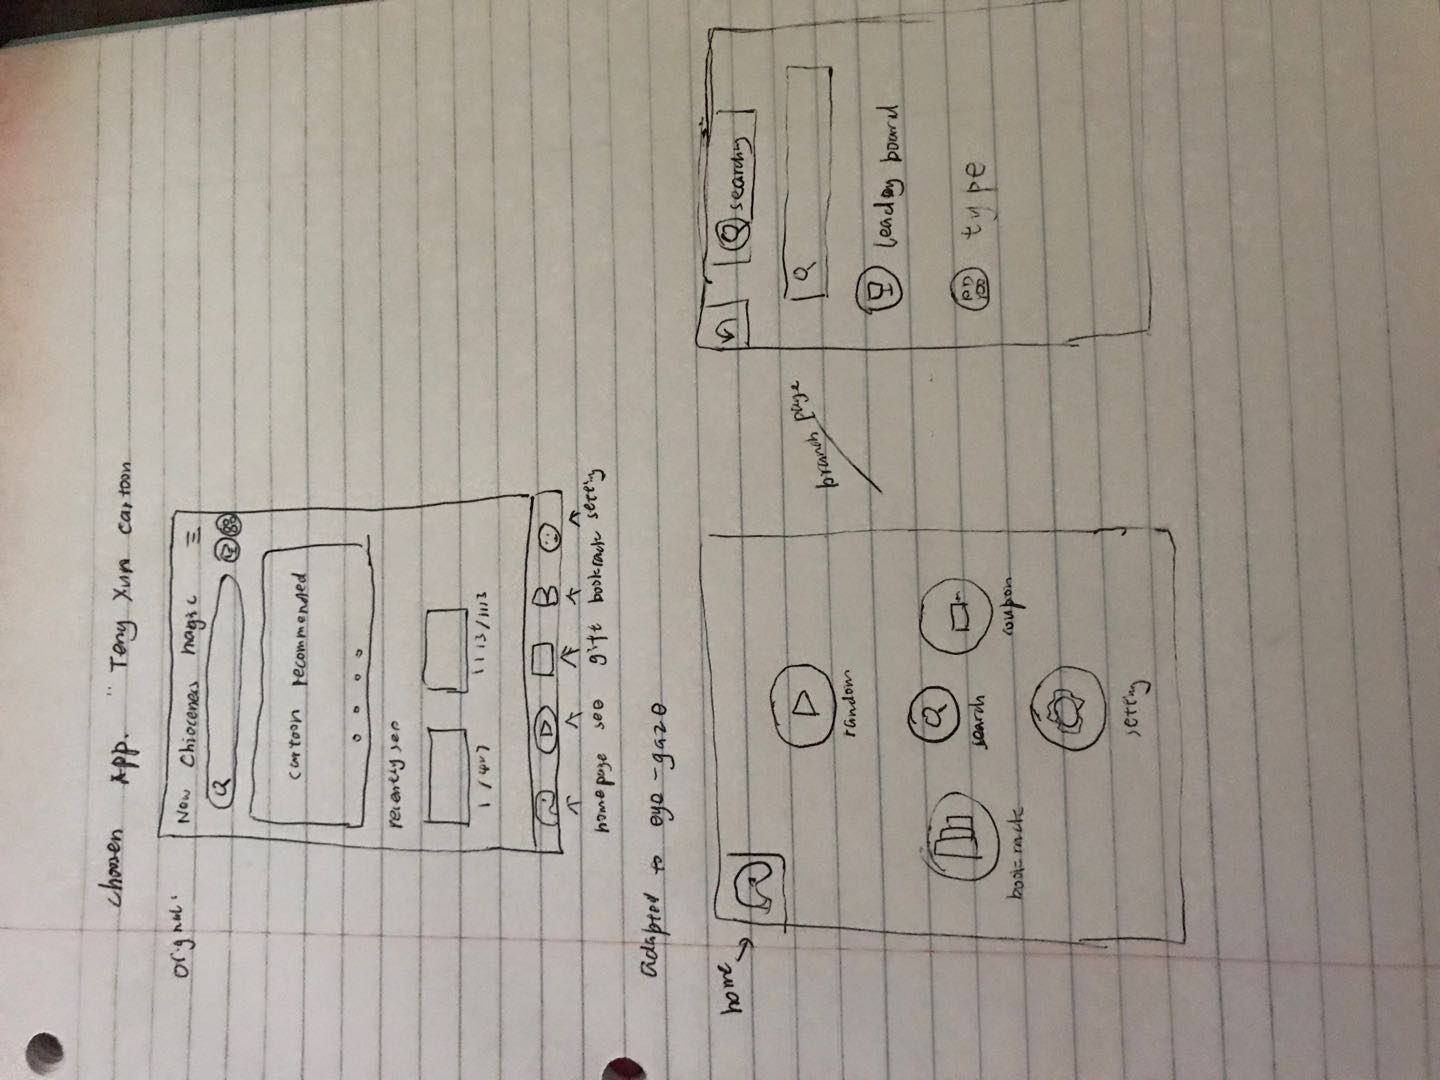 choosen App. " Teng Xun cartoon
orignal:
New Chioceness magic
cartoon recommended
recently see
1 / 407
1113/1113
homepage see gift bookrack setting
adapted to eye-gaze
home
random
search
bookrack
coupon
setting
branch page
searching
leading board
type